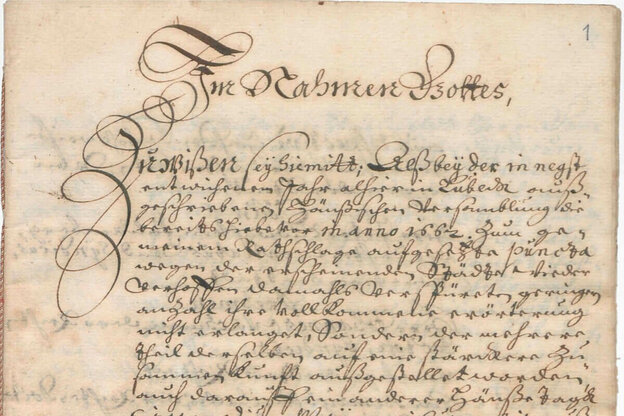 1
Im Nahmen Gottes,
Zu wißen sey hiemitt; Alß bey der in negst
entwichenen Jahr alhier in Lübeck auß
geschriebenen Hänsischen Versamblung die
bereits hiebevor in anno 1662. zum ge
meinem Rathschlage aufgesetzte puncta
wegen der erscheinenden Städte wieder
verhoffen damahls verspüreten geringen
anzahl ihre vollkommene erörterung
nicht erlanget, Sondern der mehrere
theil derselben auf eine stärckere Zu
sammenkunfft außgestellet worden,
auch darauff ein anderer Hänße tagk